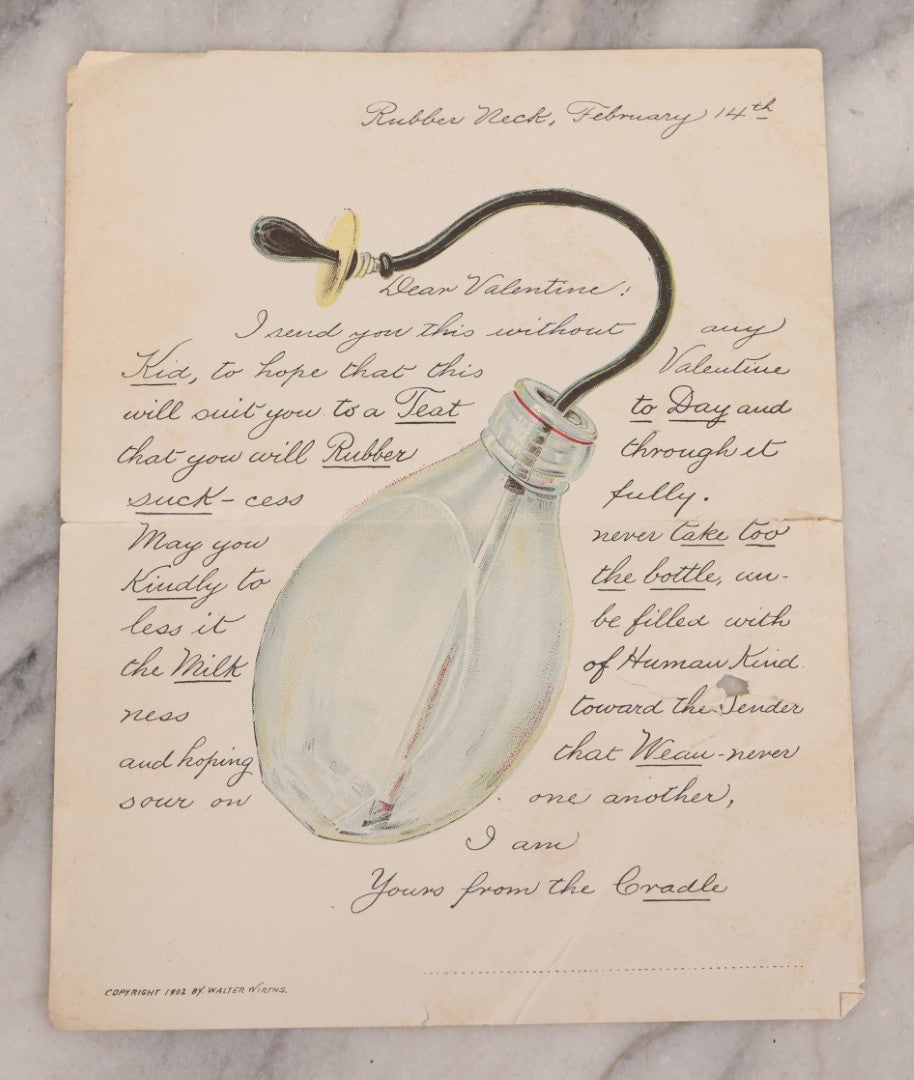 Rubber Neck, February 14th
Dear Valentine!
I send you this without any
Kid, to hope that this Valentine
will suit you to a Teat to Day and
that you will Rubber through it
suck-cess fully.
May you never take too
Kindly to the bottle, un-
less it be filled with
the Milk of Human Kind
ness toward the Tender
and hoping that Wean-never
sour on one another,
I am
Yours from the Cradle
COPYRIGHT 1902 BY. WALTER WIRTHS.